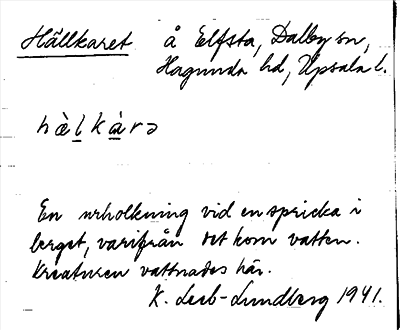 Hällkaret å Elfsta, Dalby sn,
Hagunda hd, Upsala l.
hæ̀lkàrə
En urholkning vid en spricka i
berget, varifrån det kom vatten.
Kreaturen vattnades här.
K. Leeb-Lundberg 1941.